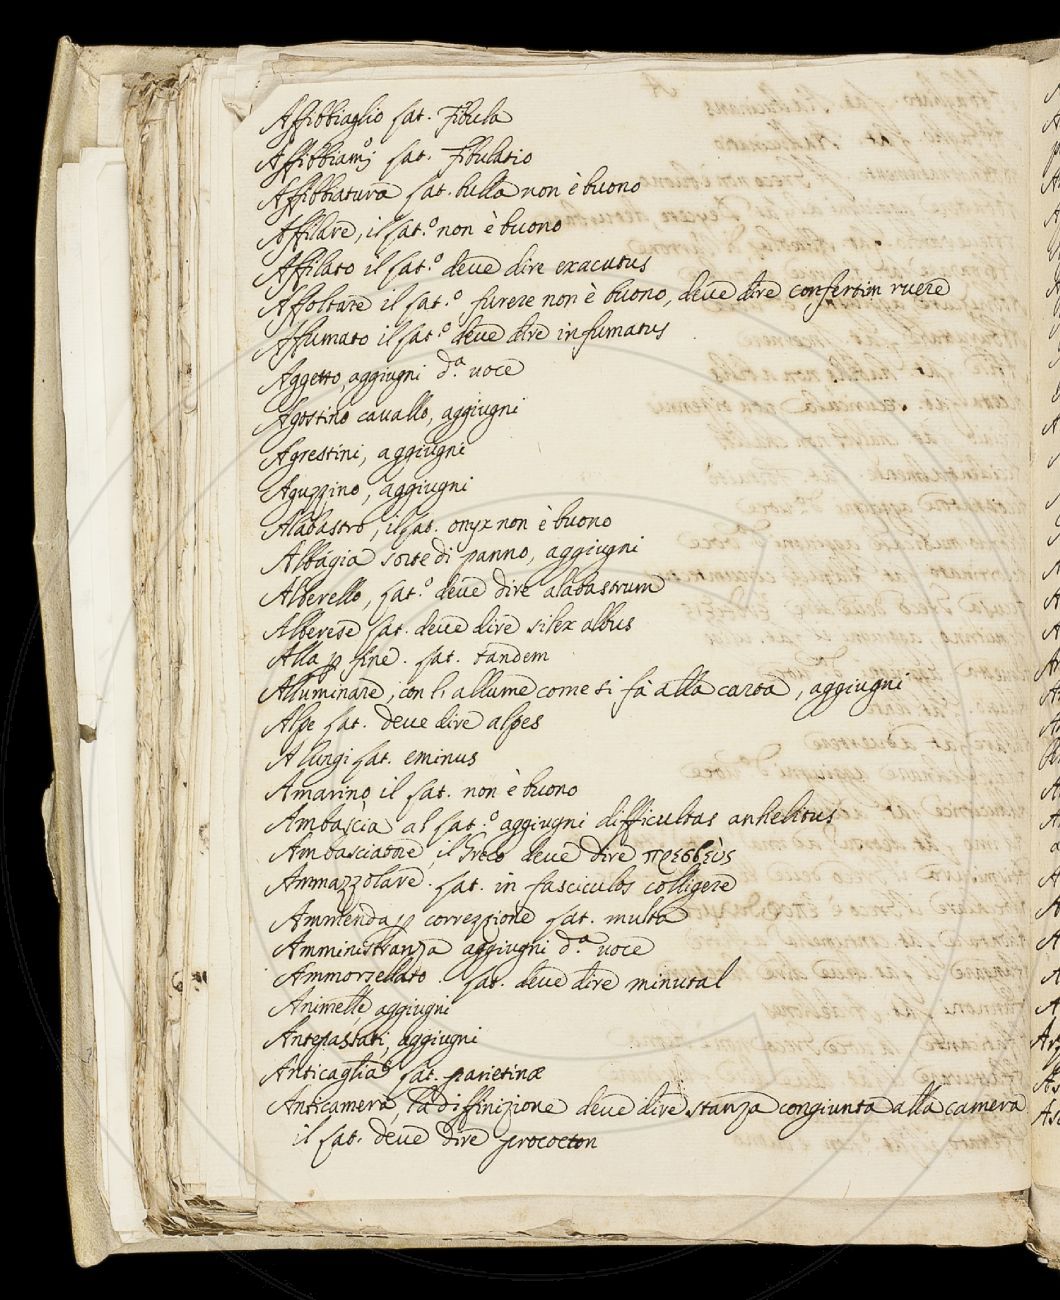 Affibbiaglio lat. Fibula
Affibbiam.º lat. fibulatio
Affibbiatura lat. bulla non è buono
Affilare, il lat.º non è buono
Affilato il lat.º deue dire exacutus
Affoltare il lat.º furere non è buono, deue dire confertim ruere
Affumato il lat.º deue dire infumatus
Aggetto, aggiugni d.ª uoce
Agostino cauallo, aggiugni
Agrestini, aggiugni
Aguzzino, aggiugni
Alabastro, il lat. onyx non è buono
Albagia sorte di panno, aggiugni
Alberello, lat.º deue dire alabastrum
Alberese lat. deue dire silex albus
Alla p fine. lat. tandem
Alluminare, con l'allume come si fà alla carta, aggiugni
Alpe lat. deue dire alpes
A lungi lat. eminus
Amarino il lat. non è buono
Ambascia al lat.º aggiugni difficultas anhelitus
Ambasciatore, il Greco deue dire πρεσβεὺς
Ammazzolare. lat. in fasciculos colligere
Ammenda p correzzione lat. multa
Amministranza aggiugni d.ª uoce
Ammorsellato. lat. deue dire minutal
Animelle aggiugni
Antipastati, aggiugni
Anticaglia lat. parietinæ
Anticamera, la diffinizione deue dire stanza congiunta alla camera
il lat. deue dire procoeton